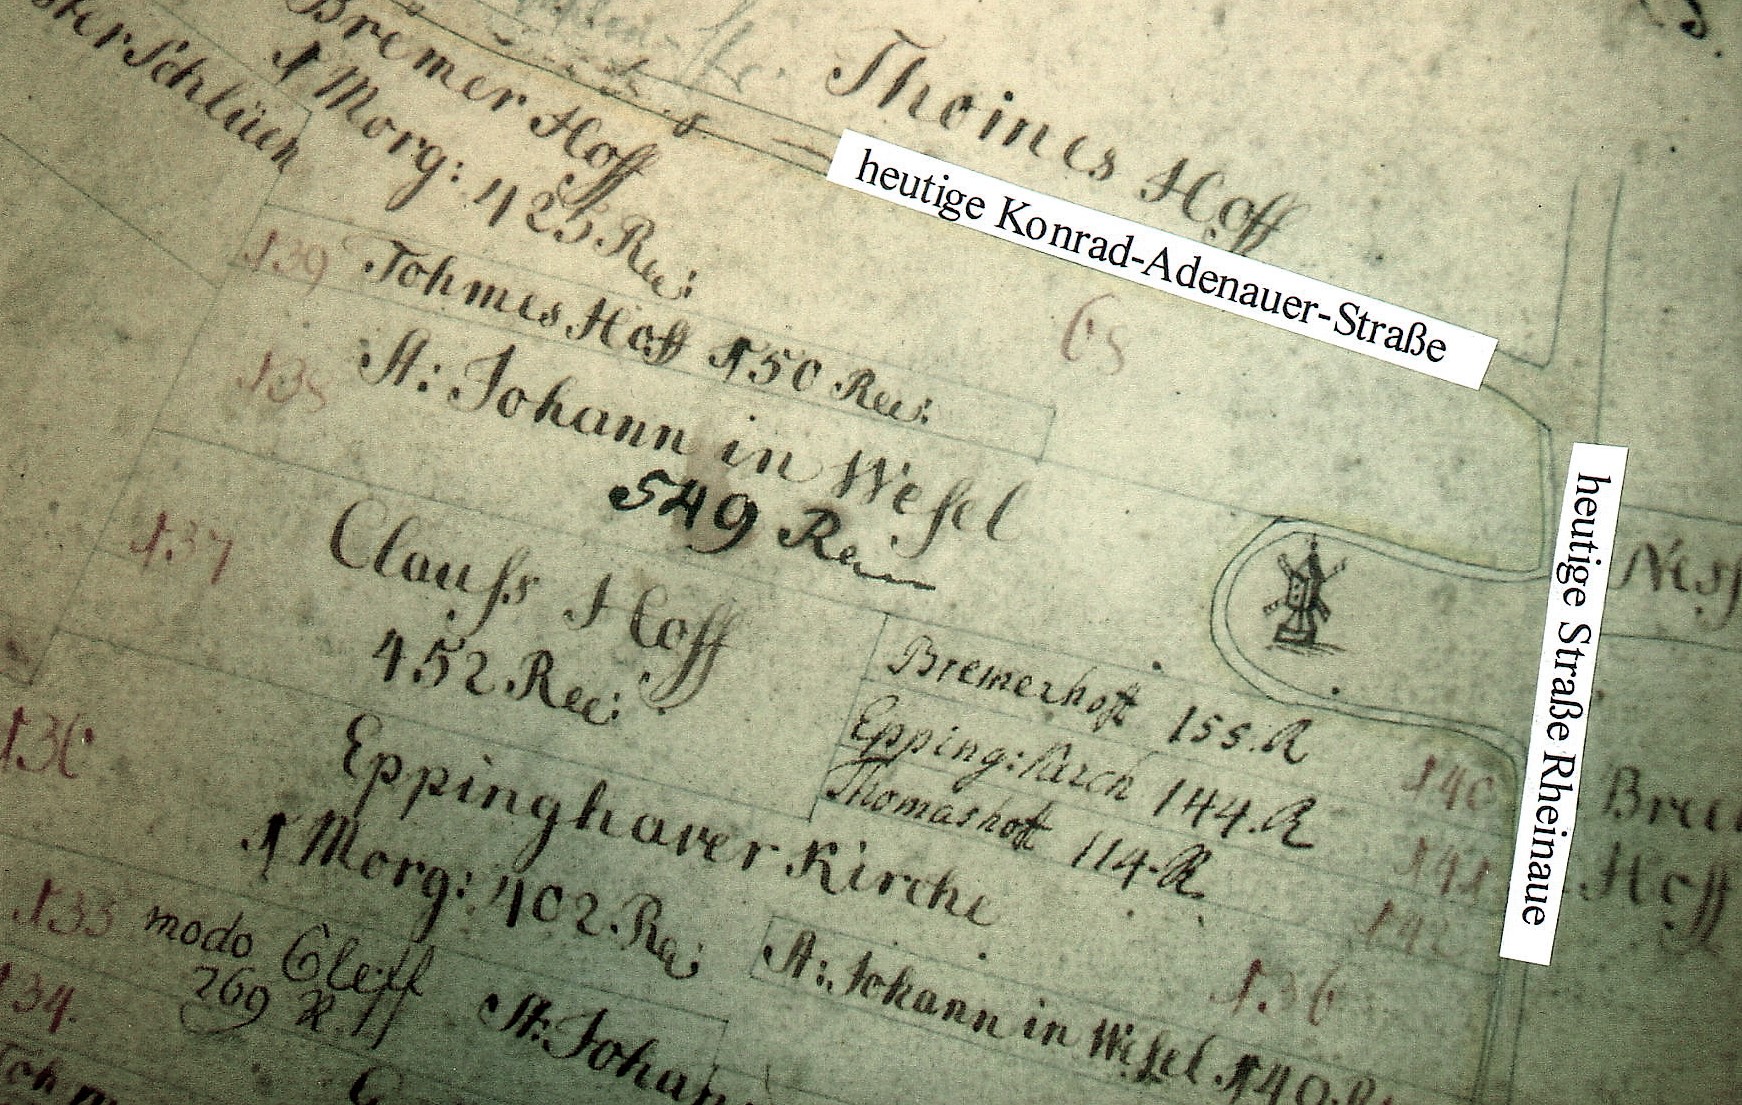 Bremer Hoff
1 Morg: 425 Ru:
Schlüen
Thoines Hoff
heutige Konrad-Adenauer-Straße
65
139 Tohmes Hoff 150 Ru:
138 St: Johann in Wesel
549 Ru
137 Clauſs Hoff
452 Ru:
heutige Straße Rheinaue
Bremerhoff 155. R 140
Epping: Kirch 144. R 141
Thomashoff 114. R 142
136 Eppinghaver Kirche
1 Morg: 402. Ru:
136
133 modo Cleff
269 R
134.
St: Johann in Weſel. 140.
St: Johan
Hoff